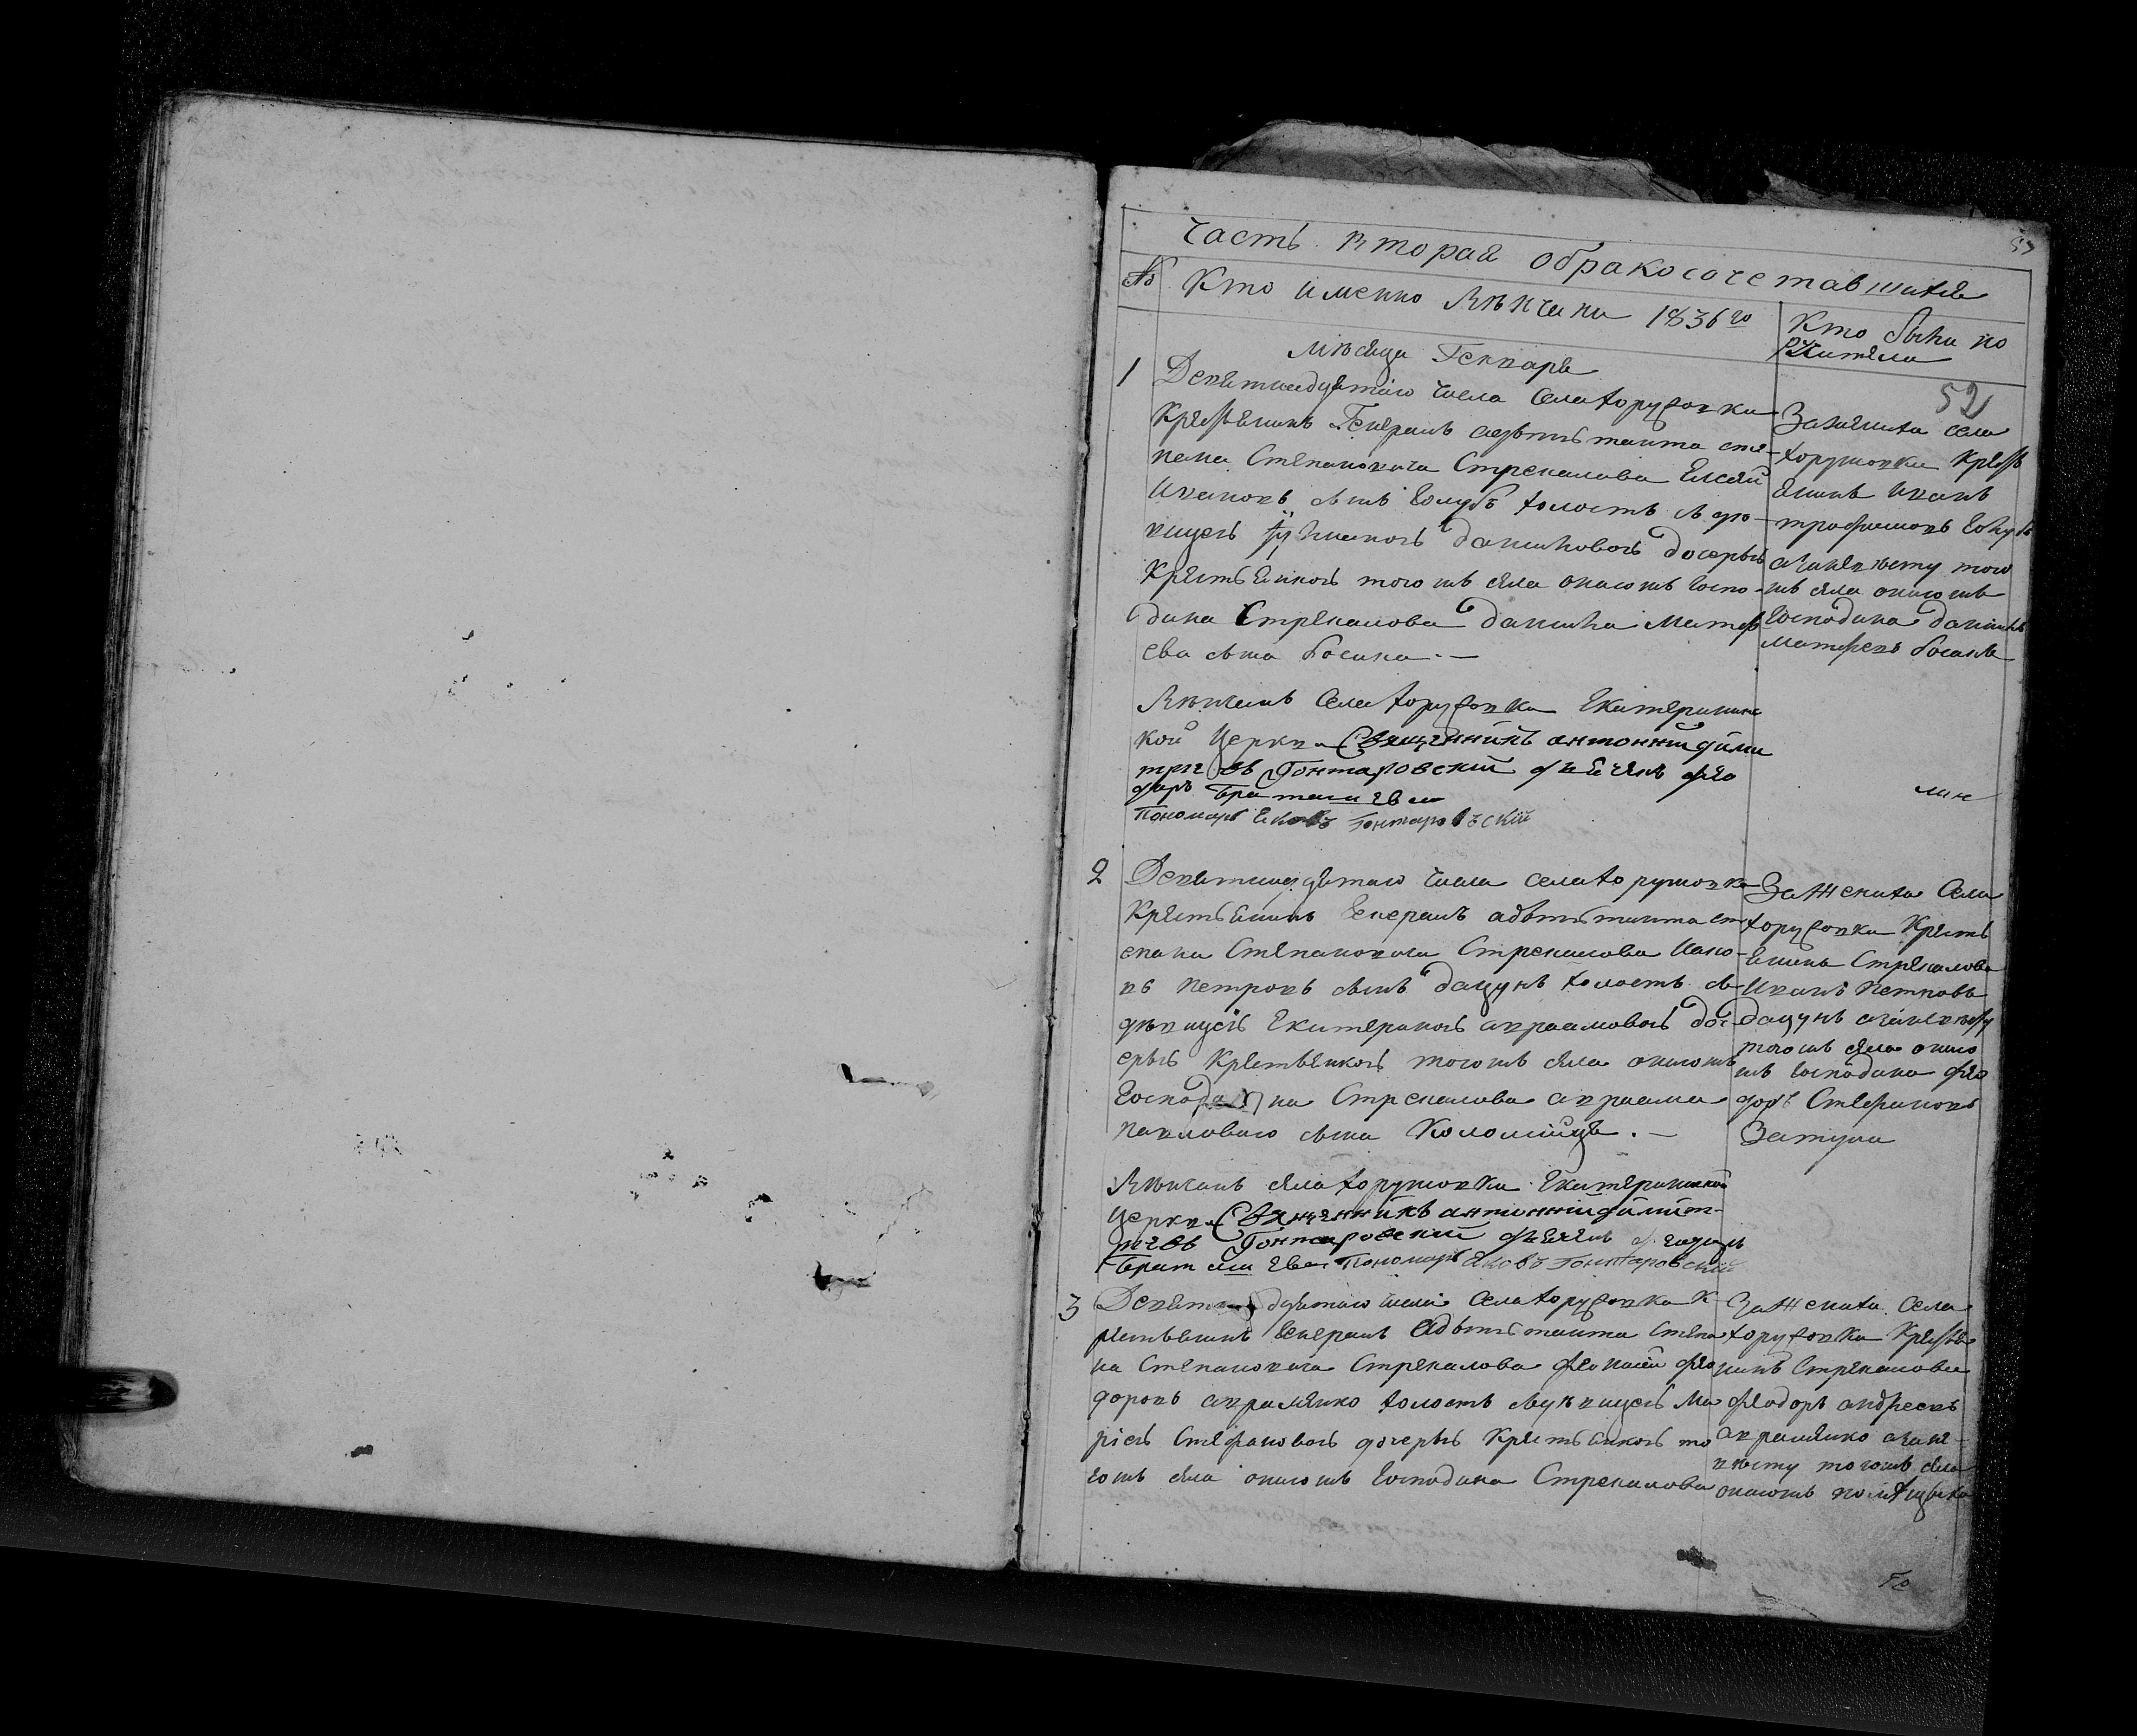 Часть вторая обракосочетавшихся
№ Кто именно венчани 1836го
Кто были по
ручители
месяца Генваря
52
1
Девятнадцятаго числа села хорушовки
крестьянинъ Генералъ адъютанта сте-
пана Степановича Стрекалова Елисей
Ивановъ сынъ Голубъ холостъ съ дѣ-
вицею Данииловою дочерью
крестьянкою того жъ села онагожъ госпо-
дина Стрекалова Данила Матфѣ
ева сына босика.—
За жениха села
хорушовки крестьь
янинъ Иванъ
трофимовъ Голубъ
а за невѣсту того
жъ села онагожъ
господина Данилъ
Матфѣевъ босикъ
Вѣнчалъ села хорушовки Екатеринин
кой Церкви Священникъ антоний дими
триевъ Гонтаровский дьячекъ фео
доръ
пономаръ Яковъ Гонтаровъский
2
Девятнадцятаго числа села хорушовки
крестьянинъ генералъ адъютанта ст
епана Степановича Стрекалова Иако-
въ Петровъ сынъ дацунъ холостъ съ
дѣвицею Екатериною авраамовою доч-
ерью крестьянкою тогожъ села онагожъ
Господина Стрекалова авраама
павловаго сына Коломийця.—
За жениха села
хорушовки кресть
янинъ Стрекалова
Иванъ Петровъ
дацунъ а за невѣсту
тогожъ села онаго
жъ господина фео
доръ Стефановъ
Вѣнчалъ села хорушовки Екатерининской
Церкви Священникъ антоний димит-
риевъ Гонтаровский дьячекъ феодоръ
пономаръ Яковъ Гонтаровский
3
Девятнадцятаго числа села хорушовки к
рестьянинъ генералъ адъютанта степа
на Степановича Стрекалова фео
доровъ авраменко холостъ съ дѣвицею Ма
риею Стефановою дочерью крестьянкою то
гожъ села онагожъ господина Стрекалова
За жениха села
хорушовки крестья
нинъ Стрекалова
феодоръ андреевъ
авраменко а за не-
вѣсту тогожъ села
онагожъ помѣщика